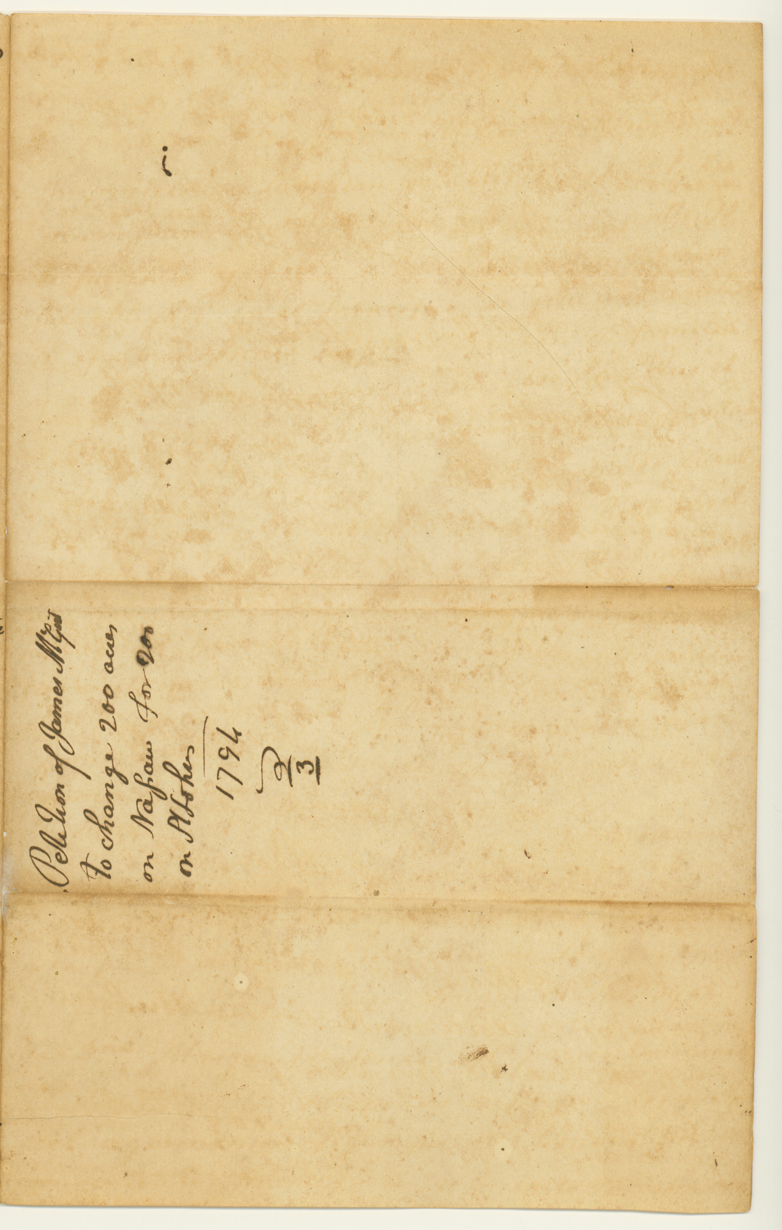 Petition of James McGirt
to change 200 acres
on Nassau for 200
on St Johns
1794
3